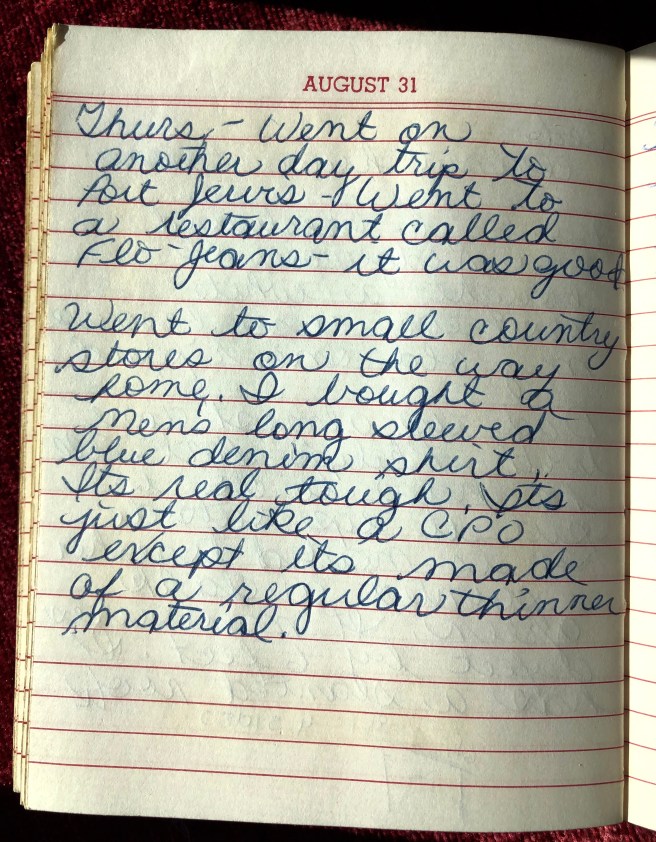 AUGUST 31
Thurs, - Went on
another day trip to
Port Jervis - Went to
a restaurant called
Flo-Jeans - it was good
Went to small country
stores on the way
home. I bought a
men's long sleeved
blue denim shirt.
Its real tough. Its
just like a CPO
except its made
of a regular thinner
material.